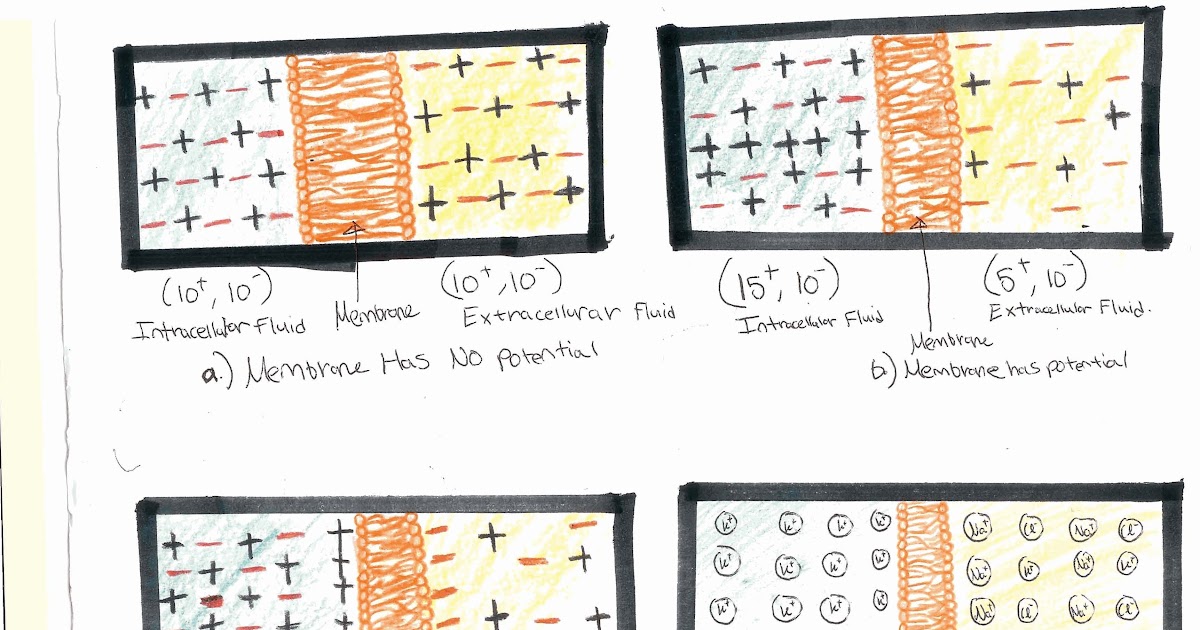 (10⁺, 10⁻)
Intracellular Fluid
Membrane
(10⁺, 10⁻)
Extracellurar Fluid
a.) Membrane Has No Potential
(15⁺, 10⁻)
Intracellular Fluid
(5⁺, 10⁻)
Extracellular Fluid.
Membrane
b) Membrane has potential
K⁺ K⁺ K⁺ K⁺ Na⁺ Cl⁻ Na⁺ Cl⁻
K⁺ K⁺ K⁺ K⁺ Na⁺ K⁺ Na⁺ K⁺
K⁺ K⁺ K⁺ K⁺ Na⁺ Cl⁻ Na⁺ Cl⁻